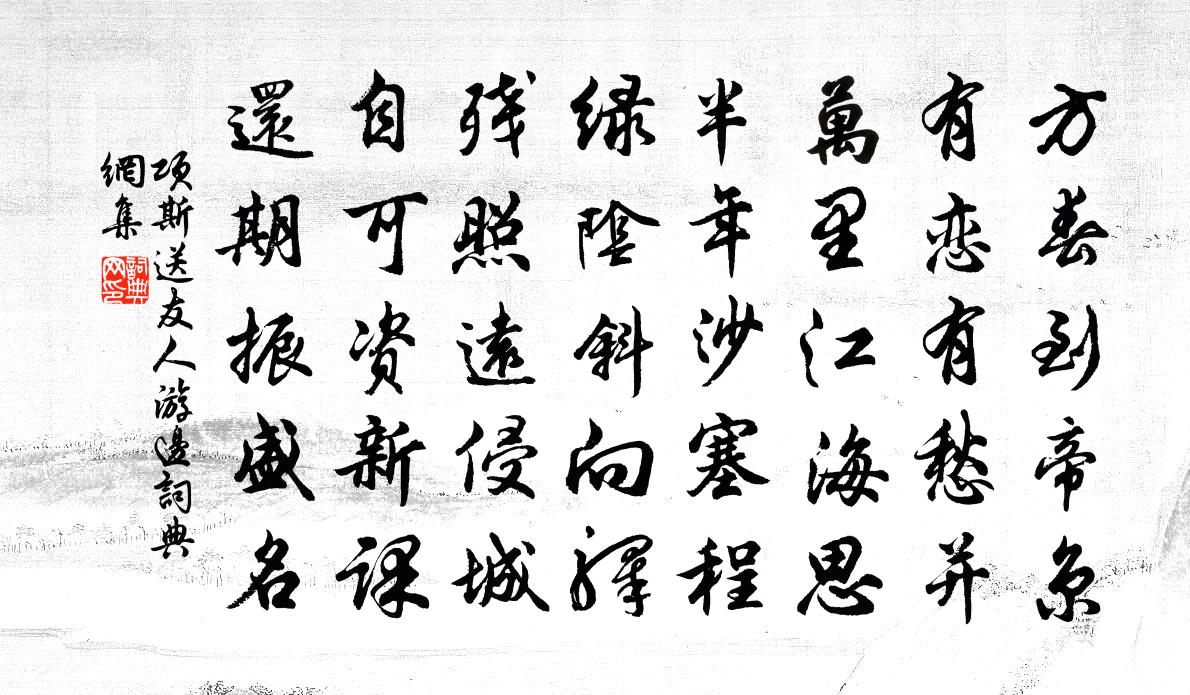 方春到帝京
有恋有愁并
萬里江海思
半年沙塞程
绿陰斜向驛
残照遠侵城
自可资新课
還期振盛名
项斯送友人游邊詞典
網集
詞典网印